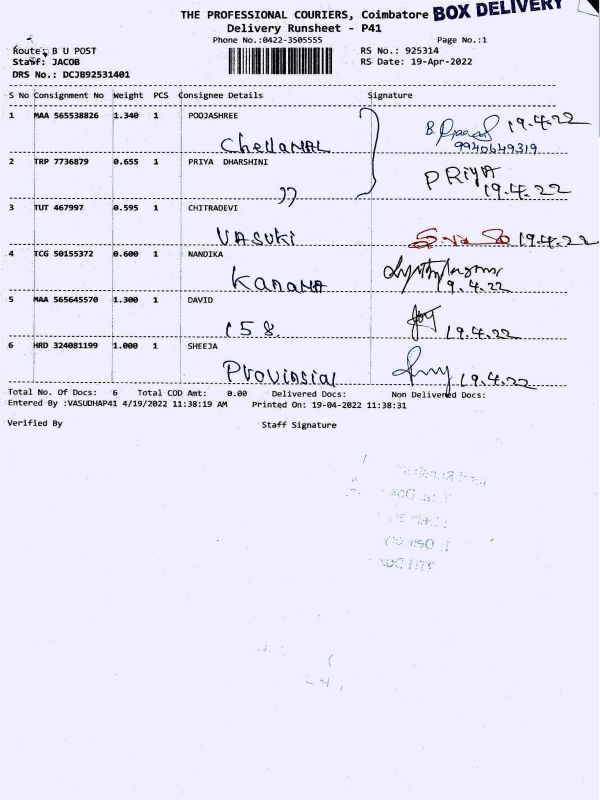 THE PROFESSIONAL COURIERS, Coimbatore BOX DELIVERY
Delivery Runsheet - P41
Phone No.:0422-3505555 Page No.:1
Route: B U POST RS No.: 925314
Staff: JACOB RS Date: 19-Apr-2022
DRS No.: DCJB92531401
S No Consignment No Weight PCS Consignee Details Signature
1 MAA 565538826 1.340 1 POOJASHREE
B. 19.4.22
9940649319
2 TRP 7736879 0.655 1 PRIYA DHARSHINI
PRIYA
19.4.22
3 TUT 467997 0.595 1 CHITRADEVI
VASUKI 19.4.22
4 TCG 50155372 0.600 1 NANDIKA
19.4.22
5 MAA 565645570 1.300 1 DAVID
158 19.4.22
6 HRD 324081199 1.000 1 SHEEJA
Provinsial 19.4.22
Total No. Of Docs: 6 Total COD Amt: 0.00 Delivered Docs: Non Delivered Docs:
Entered By :VASUDHAP41 4/19/2022 11:38:19 AM Printed On: 19-04-2022 11:38:31
Verified By Staff Signature